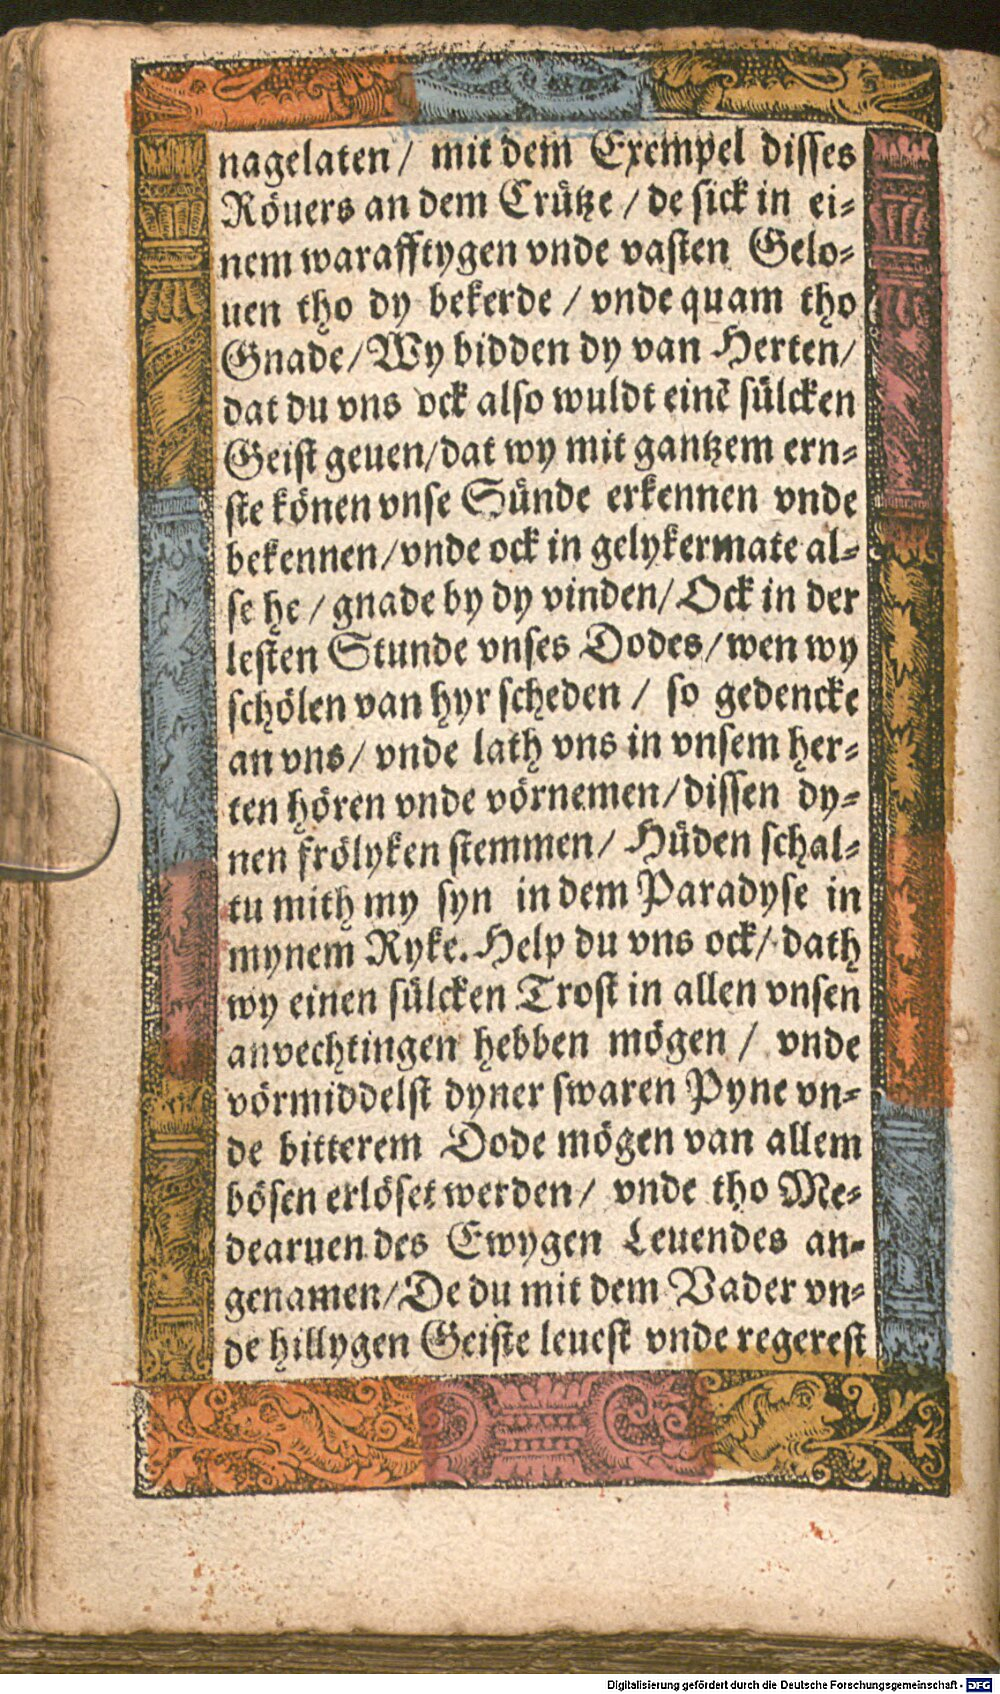 nagelaten / mit dem Exempel disses
Röuers an dem Crütze / de sick in ei-
nem warafftygen vnde vasten Gelo-
uen tho dy bekerde / vnde quam tho
Gnade / Wy bidden dy van Herten /
dat du vns ock also wuldt einē sülcken
Geist geuen / dat wy mit gantzem ern-
ste könen vnse Sünde erkennen vnde
bekennen / vnde ock in gelykermate al-
se he / gnade by dy vinden / Ock in der
lesten Stunde vnses Dodes / wen wy
schölen van hyr scheden / so gedencke
an vns / vnde lath vns in vnsem her-
ten hören vnde vörnemen / dissen dy-
nen frölyken stemmen / Hüden schal-
tu mith my syn in dem Paradyse in
mynem Ryke. Help du vns ock / dath
wy einen sülcken Trost in allen vnsen
anvechtingen hebben mögen / vnde
vörmiddelst dyner swaren Pyne vn-
de bitterem Dode mögen van allem
bösen erlöset werden / vnde tho Me-
dearuen des Ewygen Leuendes an-
genamen / De du mit dem Vader vn-
de hillygen Geiste leuest vnde regerest
Digitalisierung gefördert durch die Deutsche Forschungsgemeinschaft - DFG